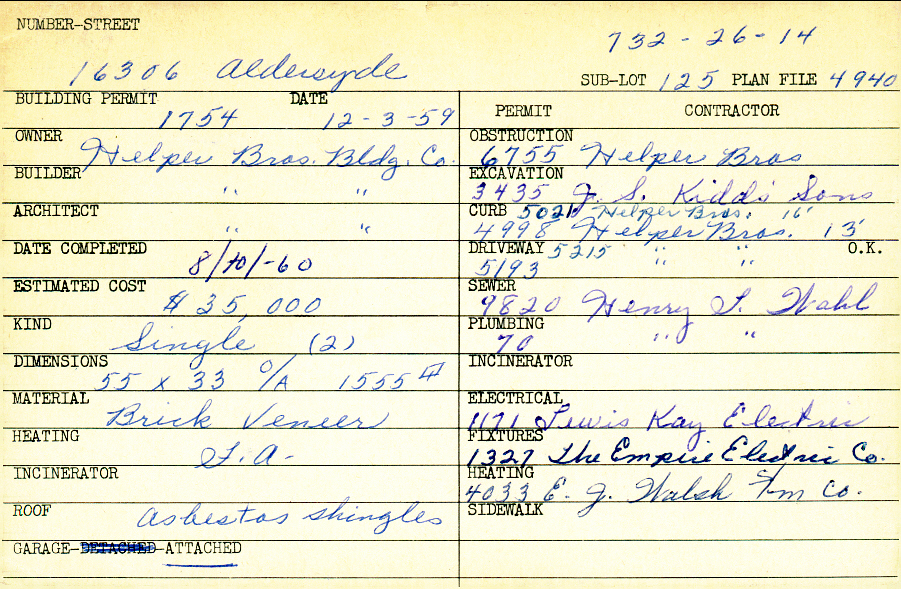 NUMBER-STREET
732-26-14
16306 Aldersyde
SUB-LOT 125 PLAN FILE 4940
BUILDING PERMIT DATE
1754 12-3-59
PERMIT CONTRACTOR
OWNER Helper Bros. Bldg. Co.
OBSTRUCTION
6755 Helper Bros
BUILDER " "
EXCAVATION
3435 J. S. Kidd's Sons
ARCHITECT " "
CURB 5021 Helper Bros. 16'
4998 Helper Bros. 13'
DATE COMPLETED
8/10/-60
DRIVEWAY 5215 " " O.K.
5193
ESTIMATED COST
$35,000
SEWER
9820 Henry F. Wahl
KIND
Single (2)
PLUMBING
70 " "
DIMENSIONS
55 x 33 O/A 1555
INCINERATOR
MATERIAL
Brick Veneer
ELECTRICAL
1171 Lewis Kay Electric
HEATING
F.A-
FIXTURES
1327 The Empire Electric Co.
INCINERATOR
HEATING
4033 E. J. Walsh Frn Co.
ROOF asbestos shingles
SIDEWALK
GARAGE-DETACHED-ATTACHED